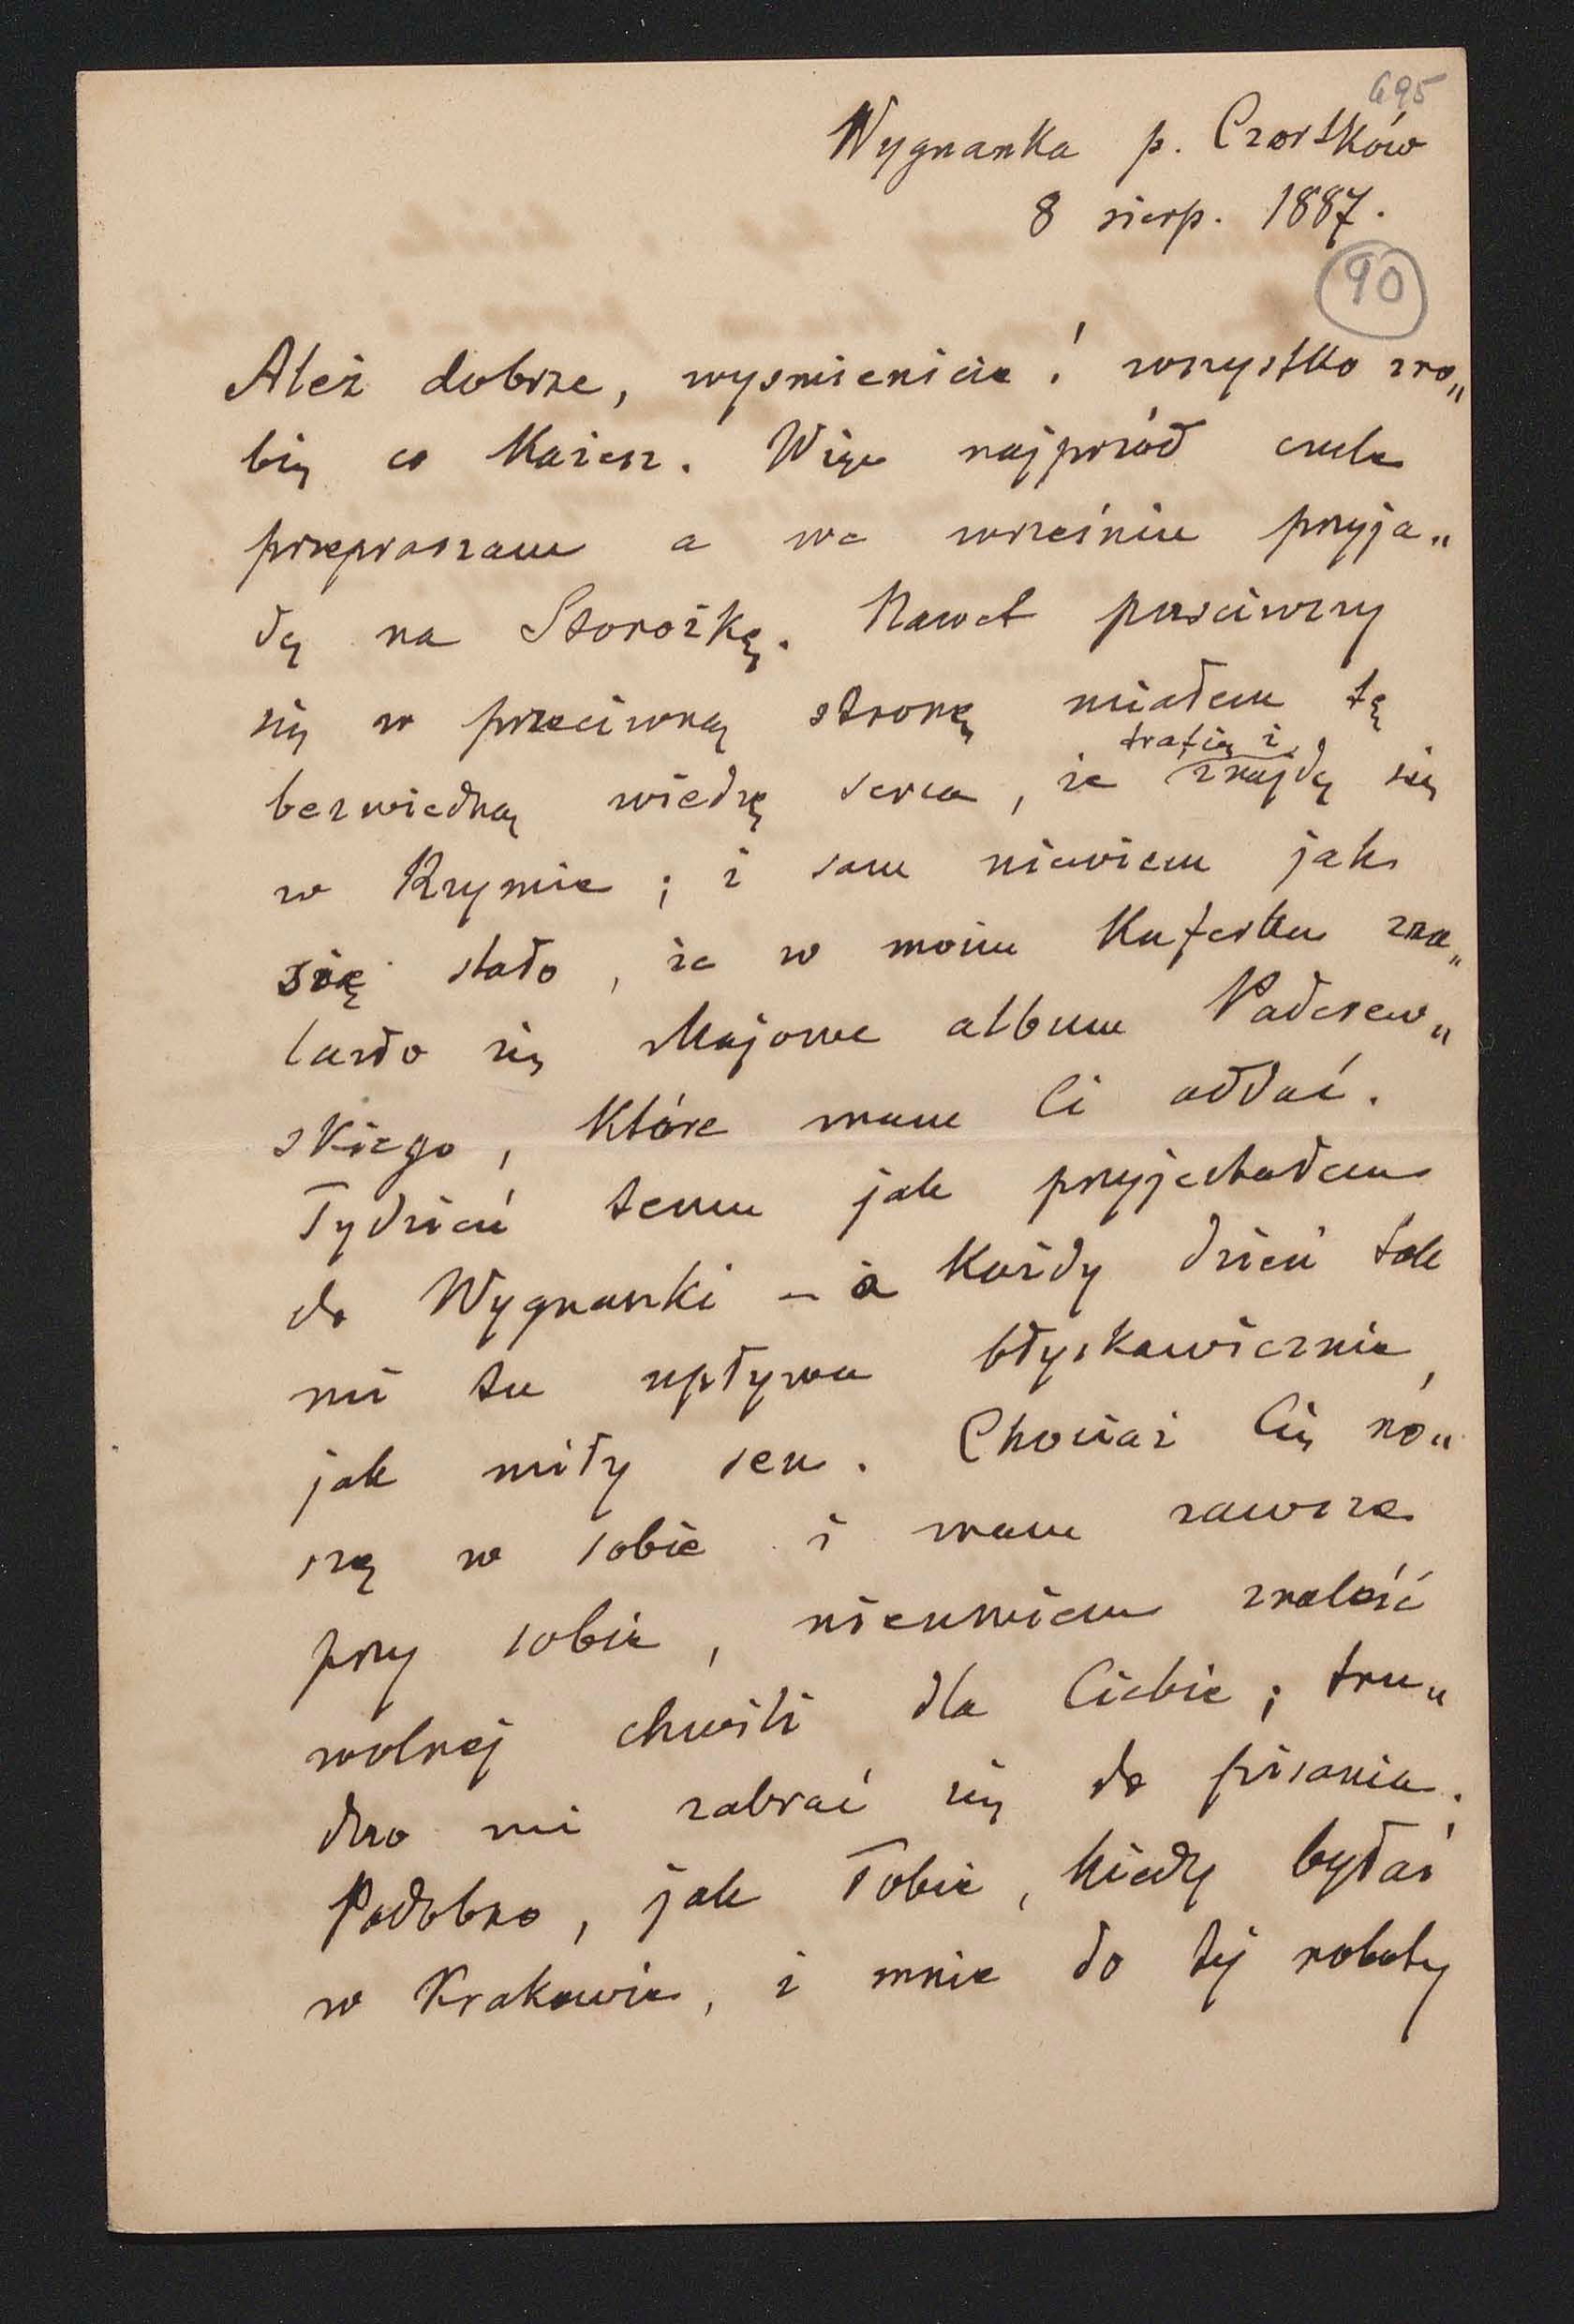 695
Wygnanka p. Czortków
8 sierp. 1887.
90
Ależ dobrze, wysmienicie! wszystko zro„
bię co każesz. Więc najprzód czule
przepraszam a we wrześniu przyja„
dę na Storożkę. Nawet puściwszy
się w przeciwną stronę miałem tę
trafię i
bezwiedną wiedzę serca, że znajdę się
w Krymie; i sam niewiem jak
się stało, że w moim kuferku zna„
lazło się Majowe album Paderew„
skiego, które mam Ci oddać.
Tydzień temu jak przyjechałem
do Wygnanki – a każdy dzień tak
mi tu upływa błyskawicznie,
jak miły sen. Chociaż Cię no„
szę w sobie i mam zawsze
przy sobie, nieumiem znaleść
wolnej chwili dla Ciebie; tru„
dno mi zabrać się do pisania.
Podobno, jak Tobie, kiedy byłaś
w Krakowie, i mnie do tej roboty